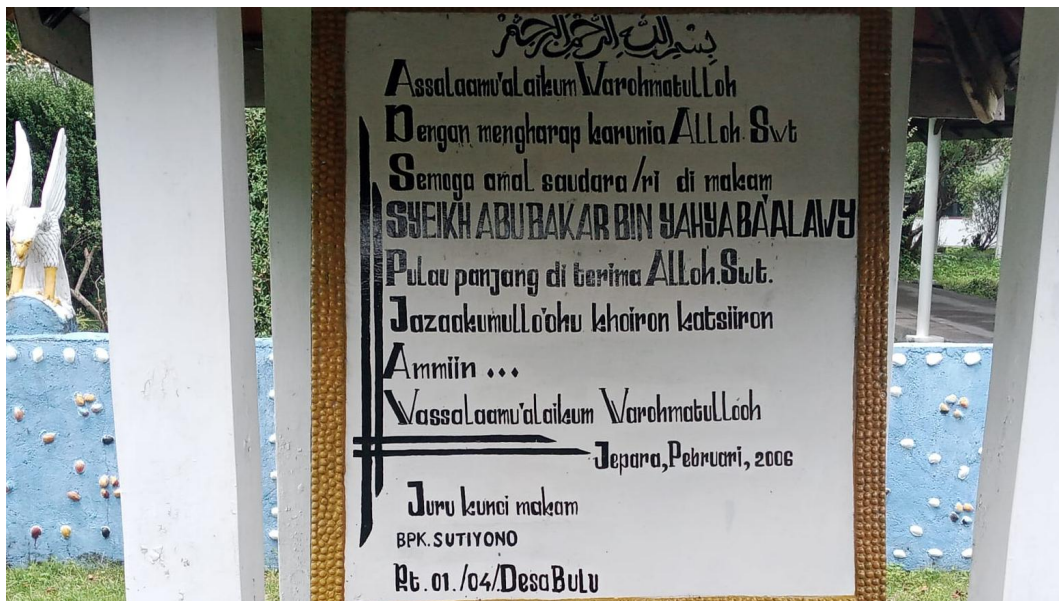 بسم الله الرحمن الرحيم
Assalaamu'alaikum Warohmatulloh
Dengan mengharap karunia ALLoh. Swt
Semoga amal saudara/ri di makam
SYEIKH ABU BAKAR BIN YAHYA BA'ALAWY
Pulau panjang di terima ALLoh.Swt.
Jazaakumullo'ohu khoiron katsiiron
Ammiin ...
Wassalaamu'alaikum Warohmatullooh
Jepara, Pebruari, 2006
Juru kunci makam
BPK. SUTIYONO
Rt. 01./04/.Desa Bulu